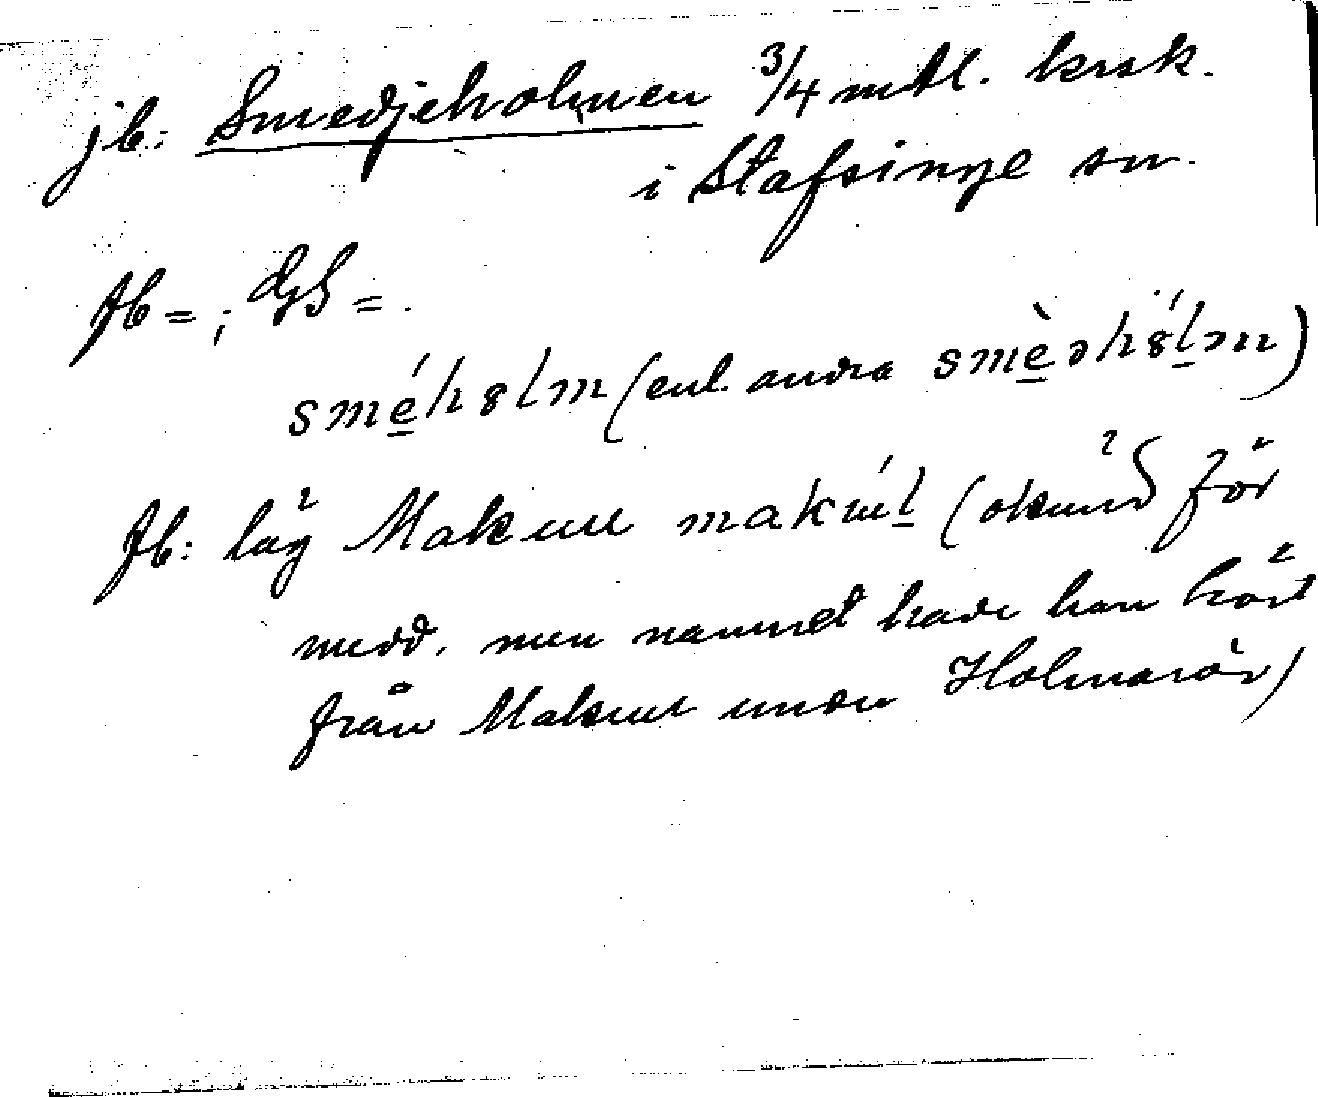 jb: Smedjeholmen 3/4 mtl. krsk.
i Stafsinge sn.
Jb = ; GS = .
smé̱hȣlm (enl. andra smè̱əhȣ́ḻən)
Jb: låg Makull makúḻ (okänd för
medd. men namnet hade han hört
från Makull under Holmarör)